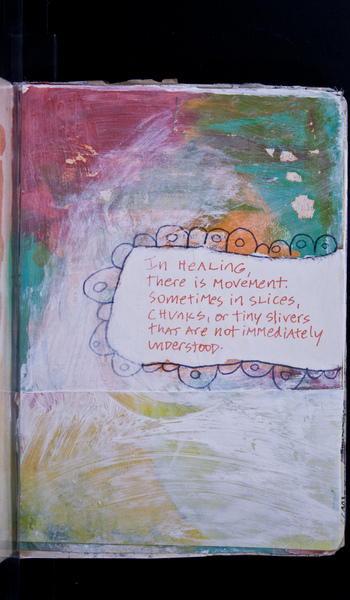 In HEALING,
THere is movement.
Sometimes in SLices,
CHunks, or tiny slivers
THAT are not immediately
understood.